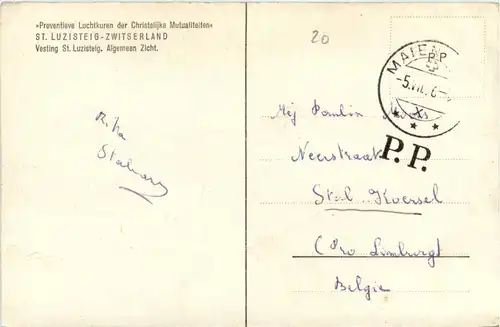 »Preventieve Luchtkuren der Christelijke Mutualiteiten«
ST. LUZISTEIG-ZWITSERLAND
Vesting St. Luzisteig. Algemeen Zicht.
20
MAIEN
P.P.
-5.VII.6
P.P.
Rita
Mej Paulin
Neerstraat
St. L Koersel
(Pro Limburgt
Belgie